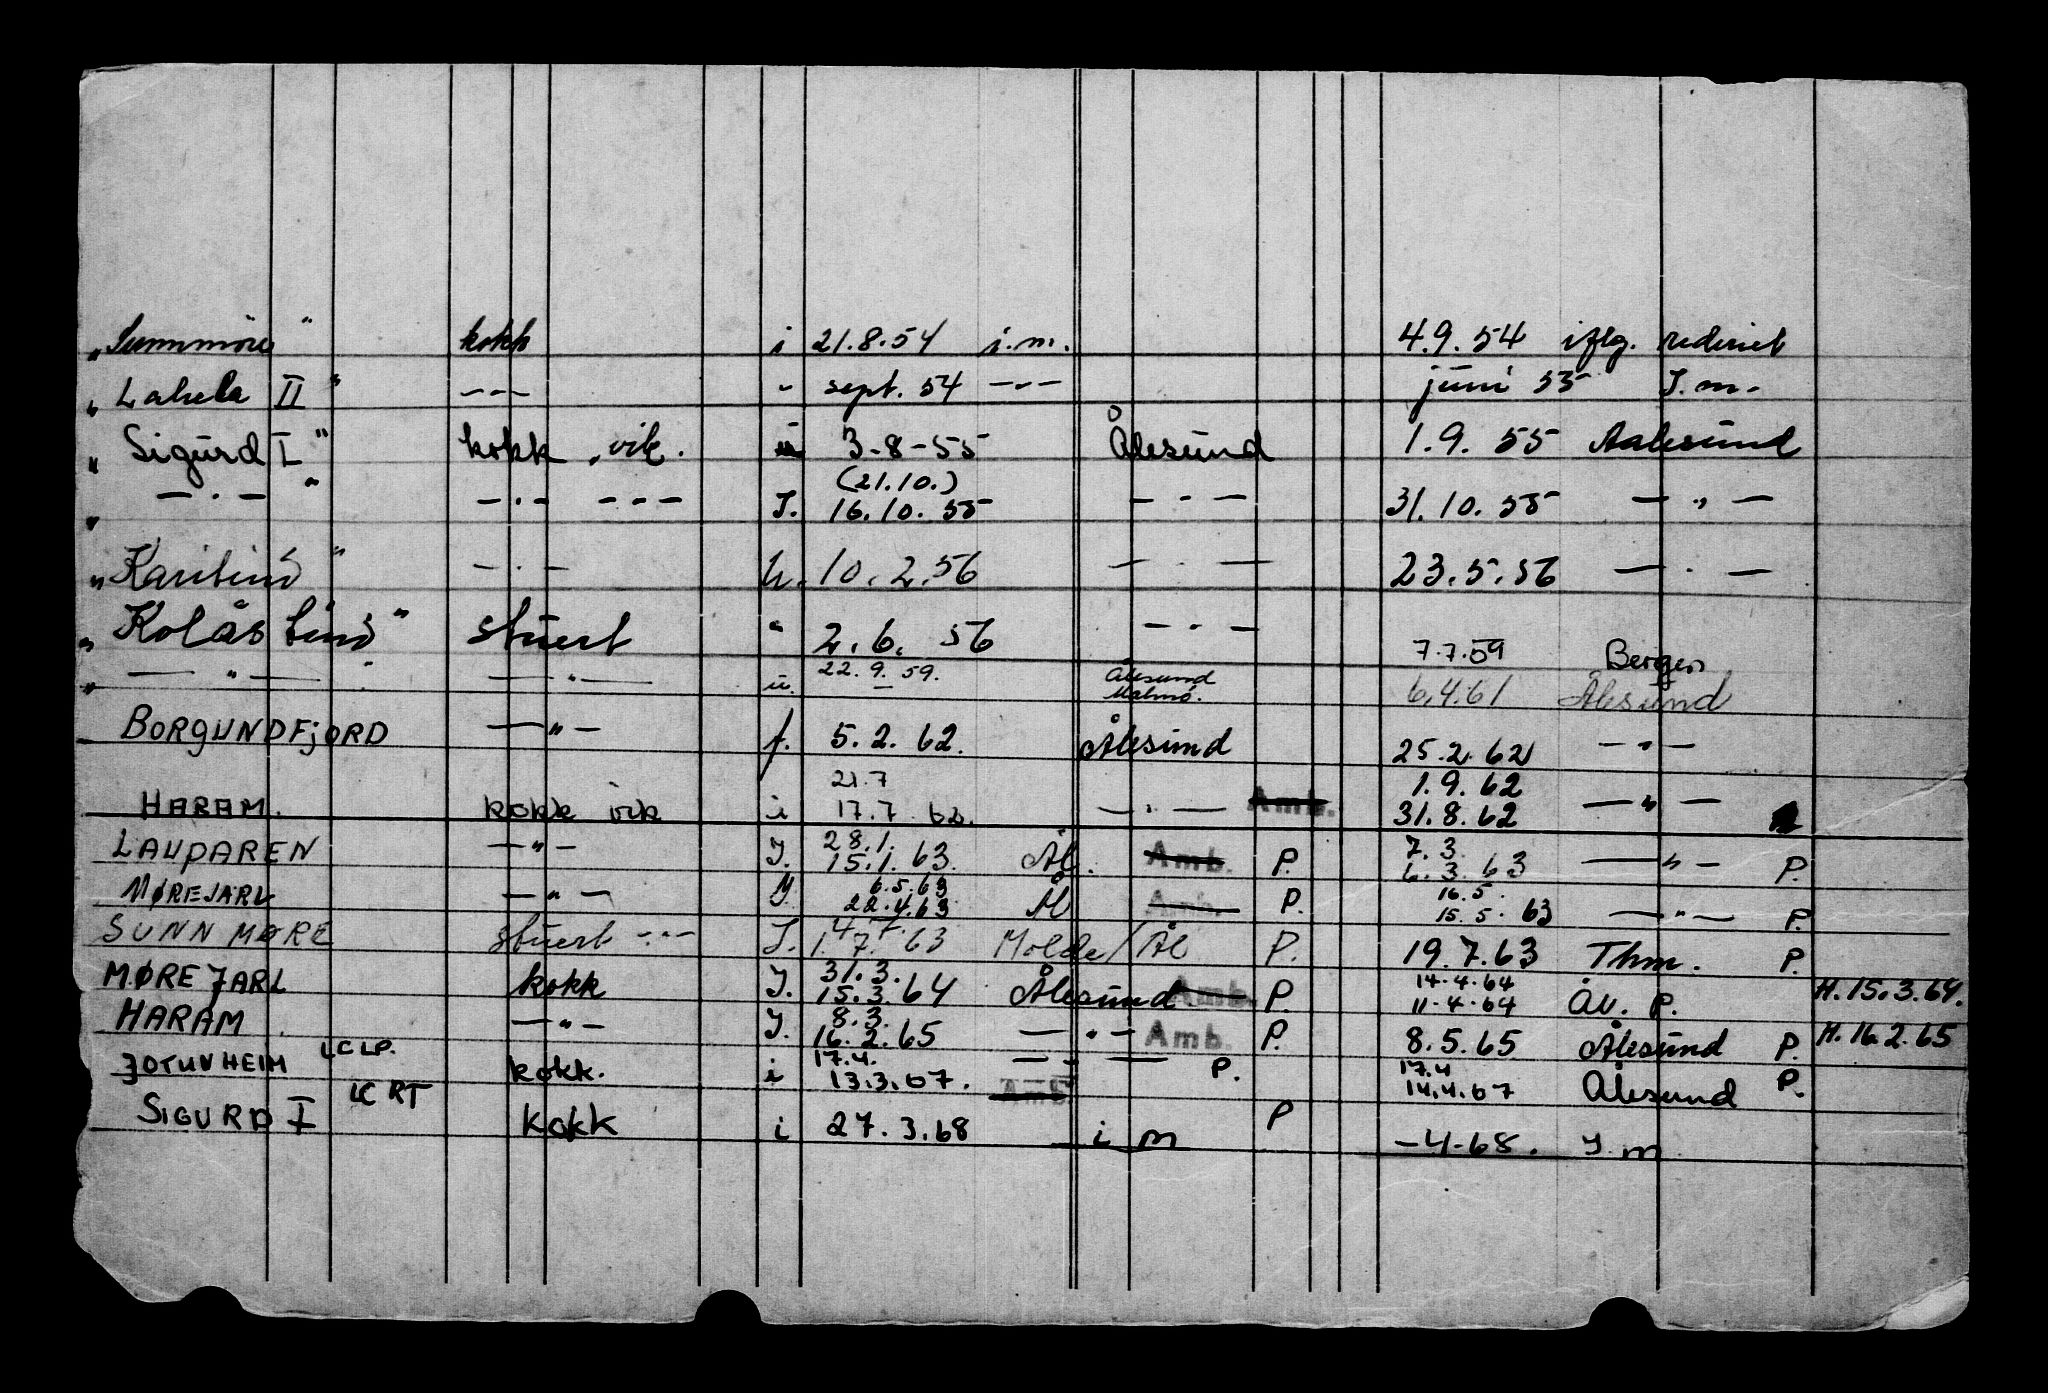 "Sunnmöre" kokk i 21.8.54 i.m. 4.9.54 iflg. rederiet
"Lakela II" -"- " sept. 54 -"- juni 55 I.m.
"Sigurd I" kokk vik. u 3-8-55 Ålesund 1.9.55 Aalesund
(21.10.)
" -"- " -"- -"- I. 16.10.55 -"- 31.10.55 -"-
"Karitind" -"- u. 10.2.56 -"- 23.5.56 -"-
"Kolåstind" stuert " 2.6.56 -"- 7.7.59 Bergen
" -"- " -"- u. 22.9.59. Ålesund Malmö. 6.4.61 Ålesund
BORGUNDFJORD -"- f. 5.2.62. Ålesund 25.2.62 -"-
21.7 1.9.62
HARAM. kokk vik i 17.7.62. -"- Amb. 31.8.62 -"-
28.1. 7.3.
LAUPAREN -"- I. 15.1.63. Ål. Amb. P. 6.3.63 -"- P.
6.5.63 16.5.
MØREJARL -"- Y. 22.4.63 Ål Amb. P. 15.5.63 -"- P.
4.7.
SUNNMØRE stuert -"- I. 1.7.63 Molde/Ål P. 19.7.63 Thm. P.
31.3. 14.4.64
MØREJARL kokk I. 15.3.64 Ålesund Amb. P. 11.4.64 Åv. P. H.15.3.64.
8.3.
HARAM -"- I. 16.2.65 -"- Amb. P. 8.5.65 Ålesund P. H.16.2.65
17.4. 17.4
JOTUNHEIM LCLP. kokk. i 13.3.67. -"- Amb. P. 14.4.67 Ålesund P.
SIGURD I LC RT kokk i 27.3.68 i m P -4-68. I.m